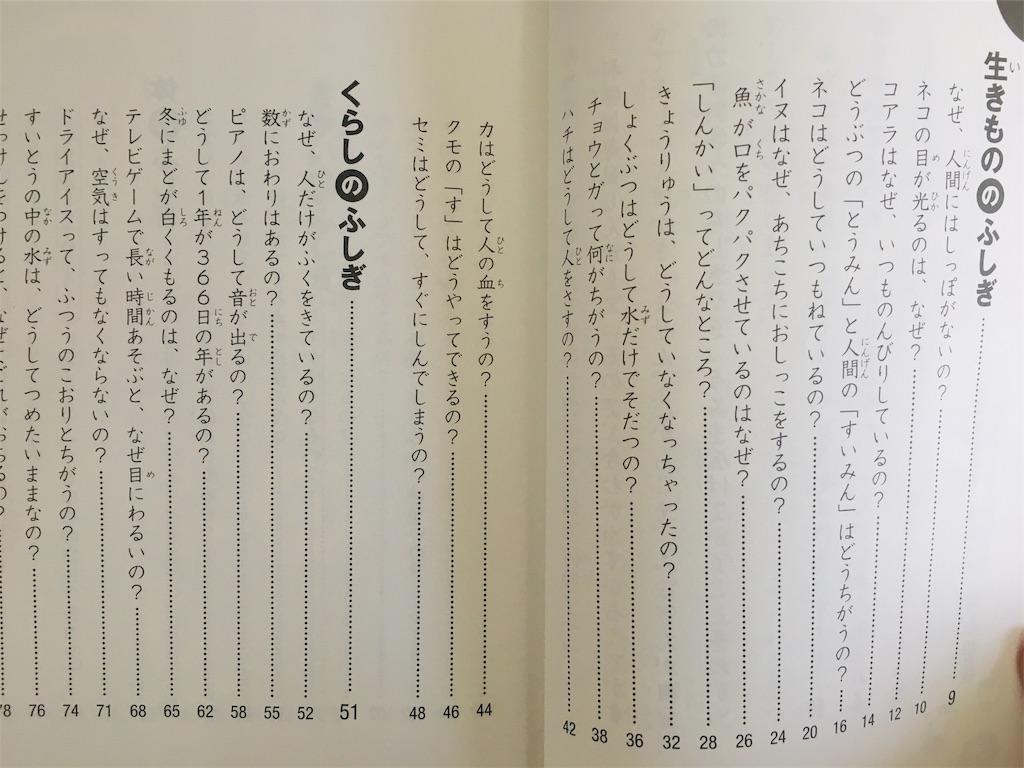 生きもののふしぎ……9
なぜ、人間にはしっぽがないの?……10
ネコの目が光るのは、なぜ?……12
コアラはなぜ、いつものんびりしているの?……14
どうぶつの「とうみん」と人間の「すいみん」はどうちがうの?……16
ネコはどうしていつもねているの?……20
イヌはなぜ、あちこちにおしっこをするの?……24
魚が口をパクパクさせているのはなぜ?……26
「しんかい」ってどんなところ?……28
きょうりゅうは、どうしていなくなっちゃったの?……32
しょくぶつはどうして水だけでそだつの?……36
チョウとガって何がちがうの?……38
ハチはどうして人をさすの?……42
カはどうして人の血をすうの?……44
クモの「す」はどうやってできるの?……46
セミはどうして、すぐにしんでしまうの?……48
くらしのふしぎ……51
なぜ、人だけがふくをきているの?……52
数におわりはあるの?……55
ピアノは、どうして音が出るの?……58
どうして1年が366日の年があるの?……62
冬にまどが白くくもるのは、なぜ?……65
テレビゲームで長い時間あそぶと、なぜ目にわるいの?……68
なぜ、空気はすってもなくならないの?……71
ドライアイスって、ふつうのこおりとちがうの?……74
すいとうの中の水は、どうしてつめたいままなの?……76
せっけんをつけると、なぜよごれがおちるの?……78